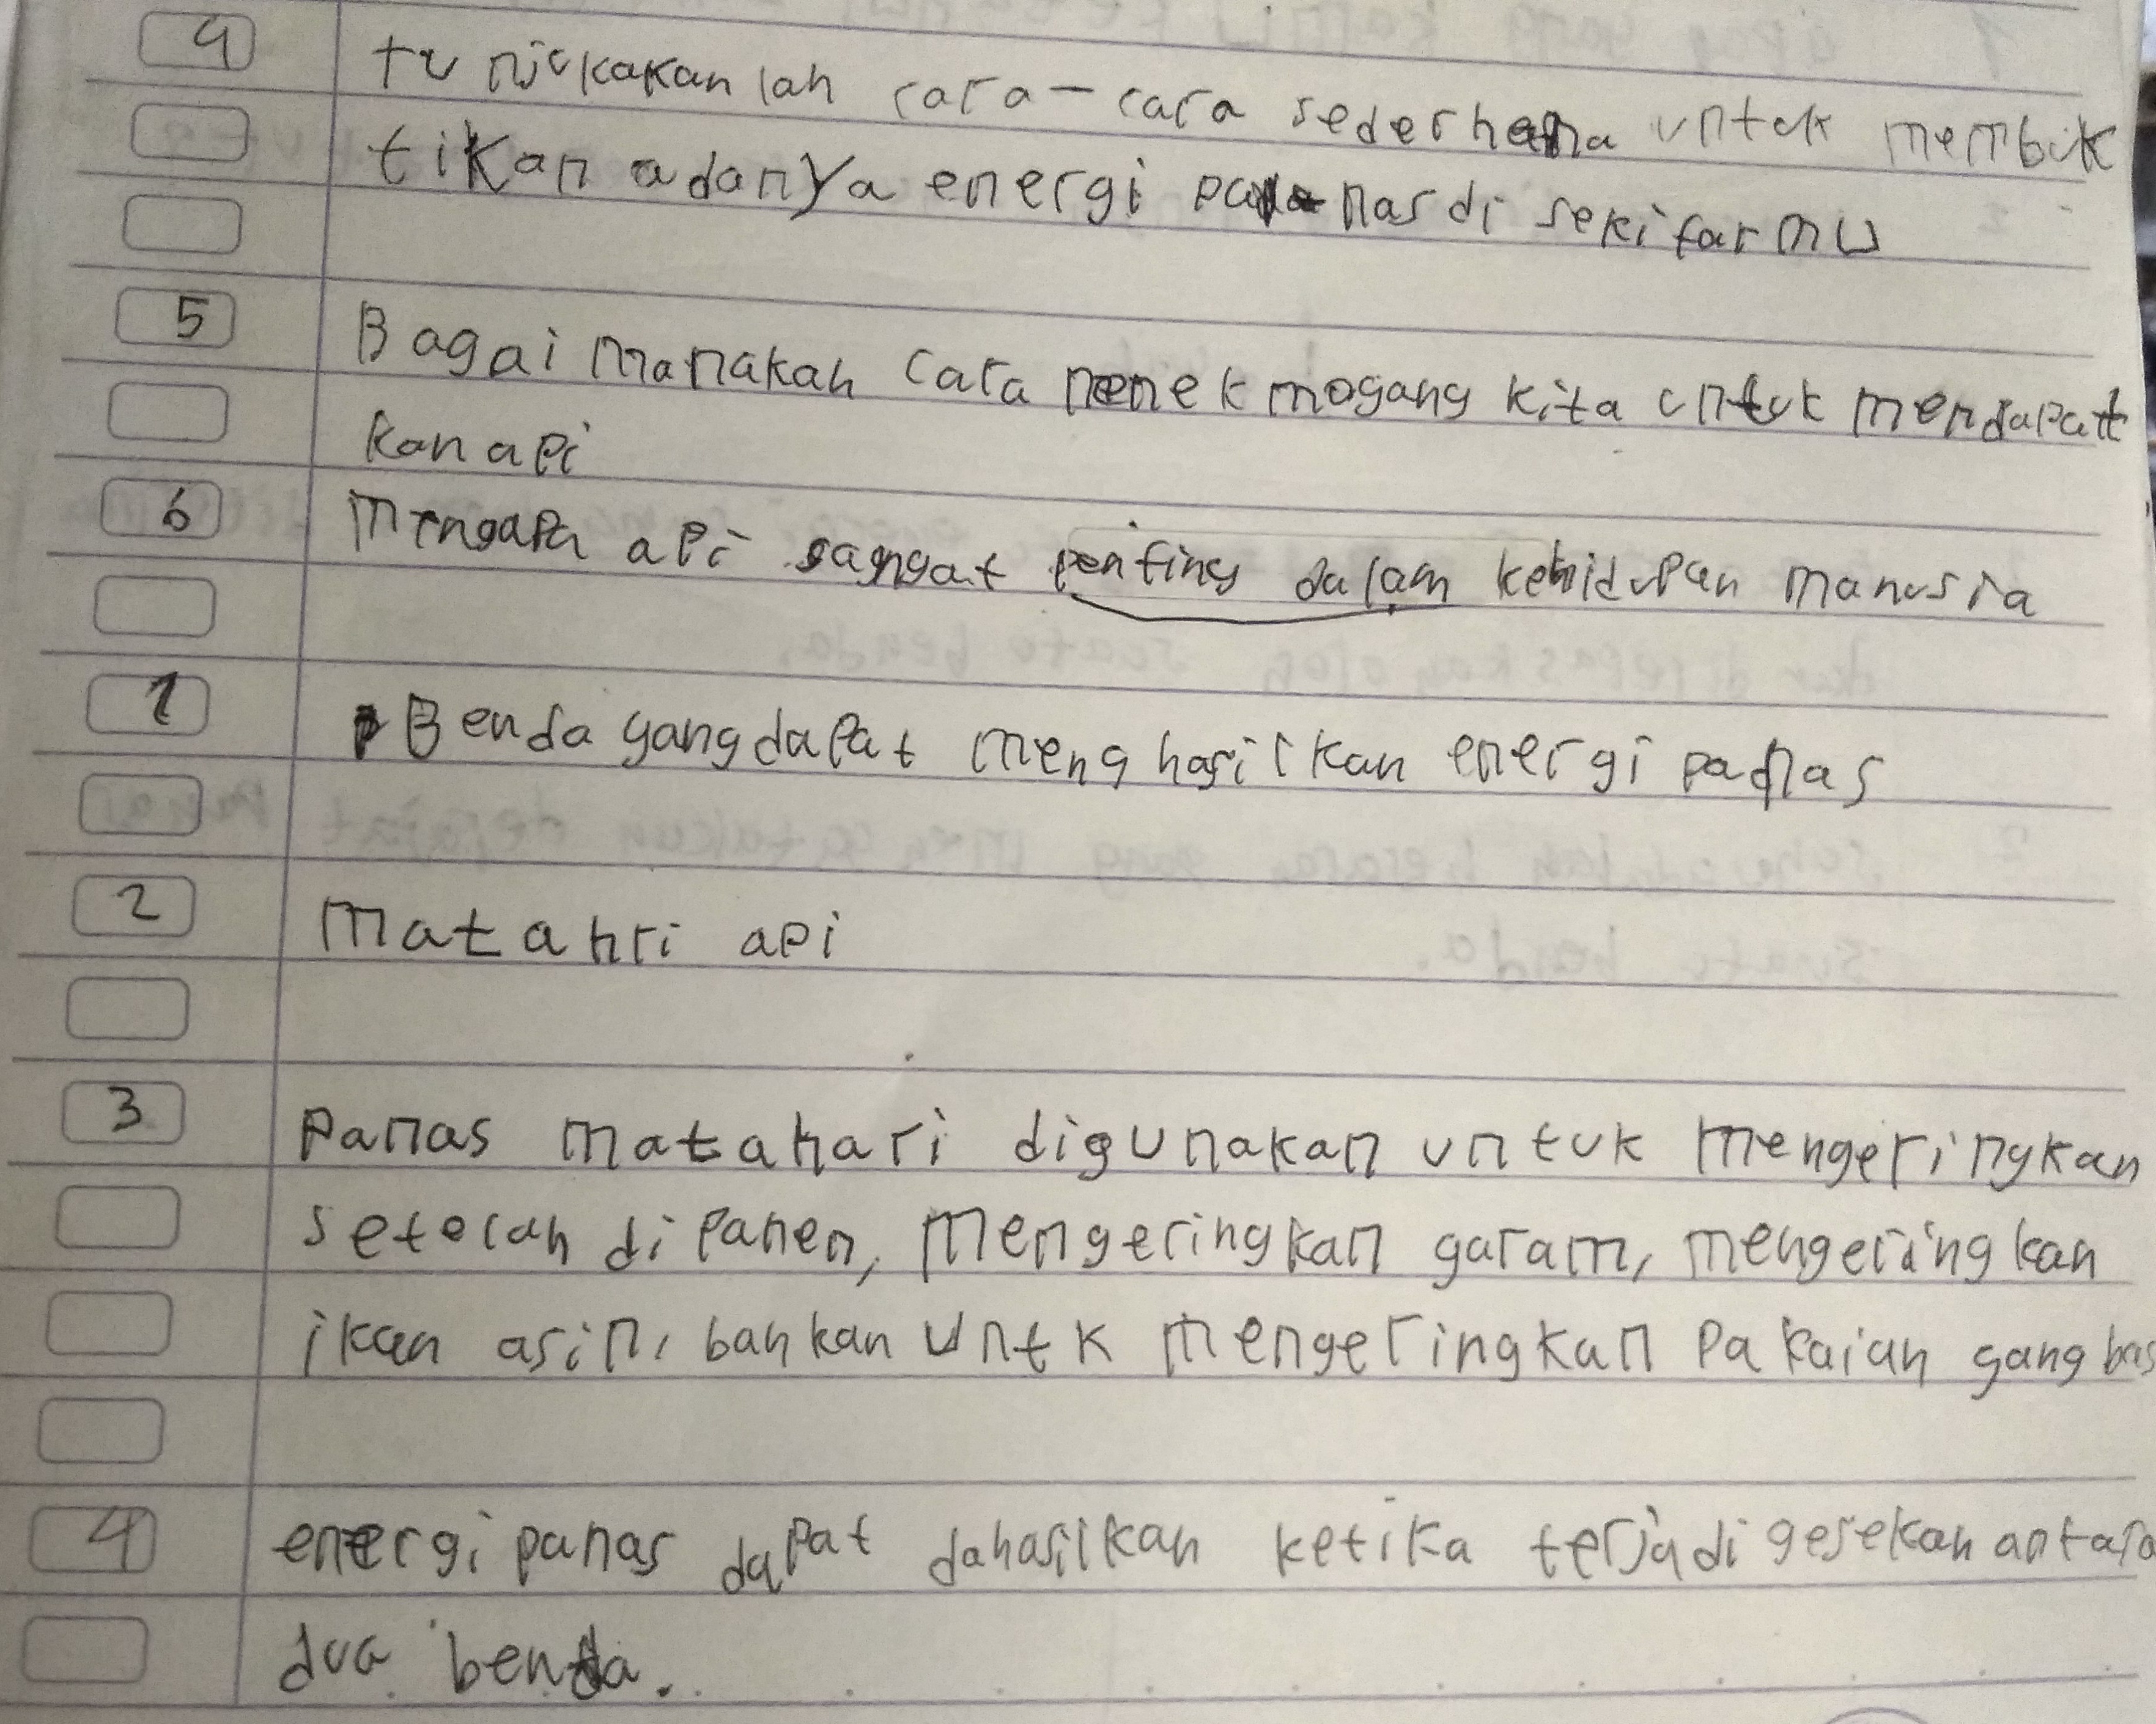 4 tunjukakanlah cara-cara sederhana untuk membuk
tikan adanya energi panas di sekitarmu
5 Bagaimanakah cara nenek mogang kita untuk mendapatt
kan api
6 Mengapa api sangat penting dalam kehidupan manusia
1 Benda yang dapat menghasilkan energi panas
2 Matahri api
3 Panas matahari digunakan untuk mengeringkan
setelah di panen, Mengeringkan garam, mengeringkan
ikan asin, bahkan untk mengeringkan pakaian yang bas
4 energi panas dapat dahasilkan ketika terjadi gesekan antara
dua benda.